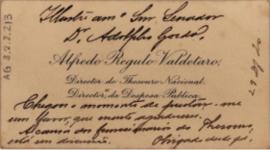 Illustr.mo Snr. Senador
Dr. Adolpho Gordo,
Alfredo Regulo Valdetaro,
Director do Thesouro Nacional.
Director da Despesa Publica.
Chegou o momento de prestar-me
um favor, que muito agradecerei.
A causa dos funccionarios do Thesouro,
está em discussão.
Obrigado desde já.
AG 3.2.2.213